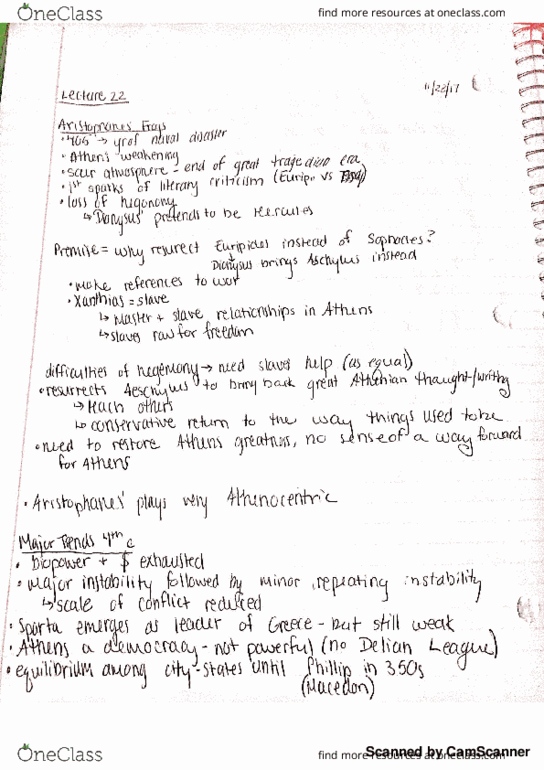 OneClass
find more resources at oneclass.com
Lecture 22
11/22/17
Aristophanes' Frogs
• 405 → yr of naval disaster
• Athens weakening
• scur atmosphere - end of great tragedian era
• 1st sparks of literary criticism (Eurip. vs
• loss of hegonony
↳ Dionysus' pretends to be Hercules
Premise = why resurect Euripides instead of Sophocles?
Dionysus brings Aschylus instead
• make references to war
• Xanthias = slave
↳ Master + slave relationships in Athens
↳ slaves row for freedom
difficulties of hegemony → need slaves help (as equal)
• resurrects Aeschylus to bring back great Athenian thought/writing
↳ teach others
↳ conservative return to the way things used to be
• need to restore Athens greatness, no sense of a way forward
for Athens
• Aristophanes' plays very Athenocentric
Major Trends 4th c
• biopower + $ exhausted
• major instability followed by minor, repeating instability
↳ scale of conflict reduced
• Sparta emerges as leader of Greece - but still weak
• Athens a democracy - not powerful (no Delian League)
• equilibrium among city-states until Phillip in 350s
(Macedon)
OneClass
find more resources at oneclass.com
Scanned by CamScanner